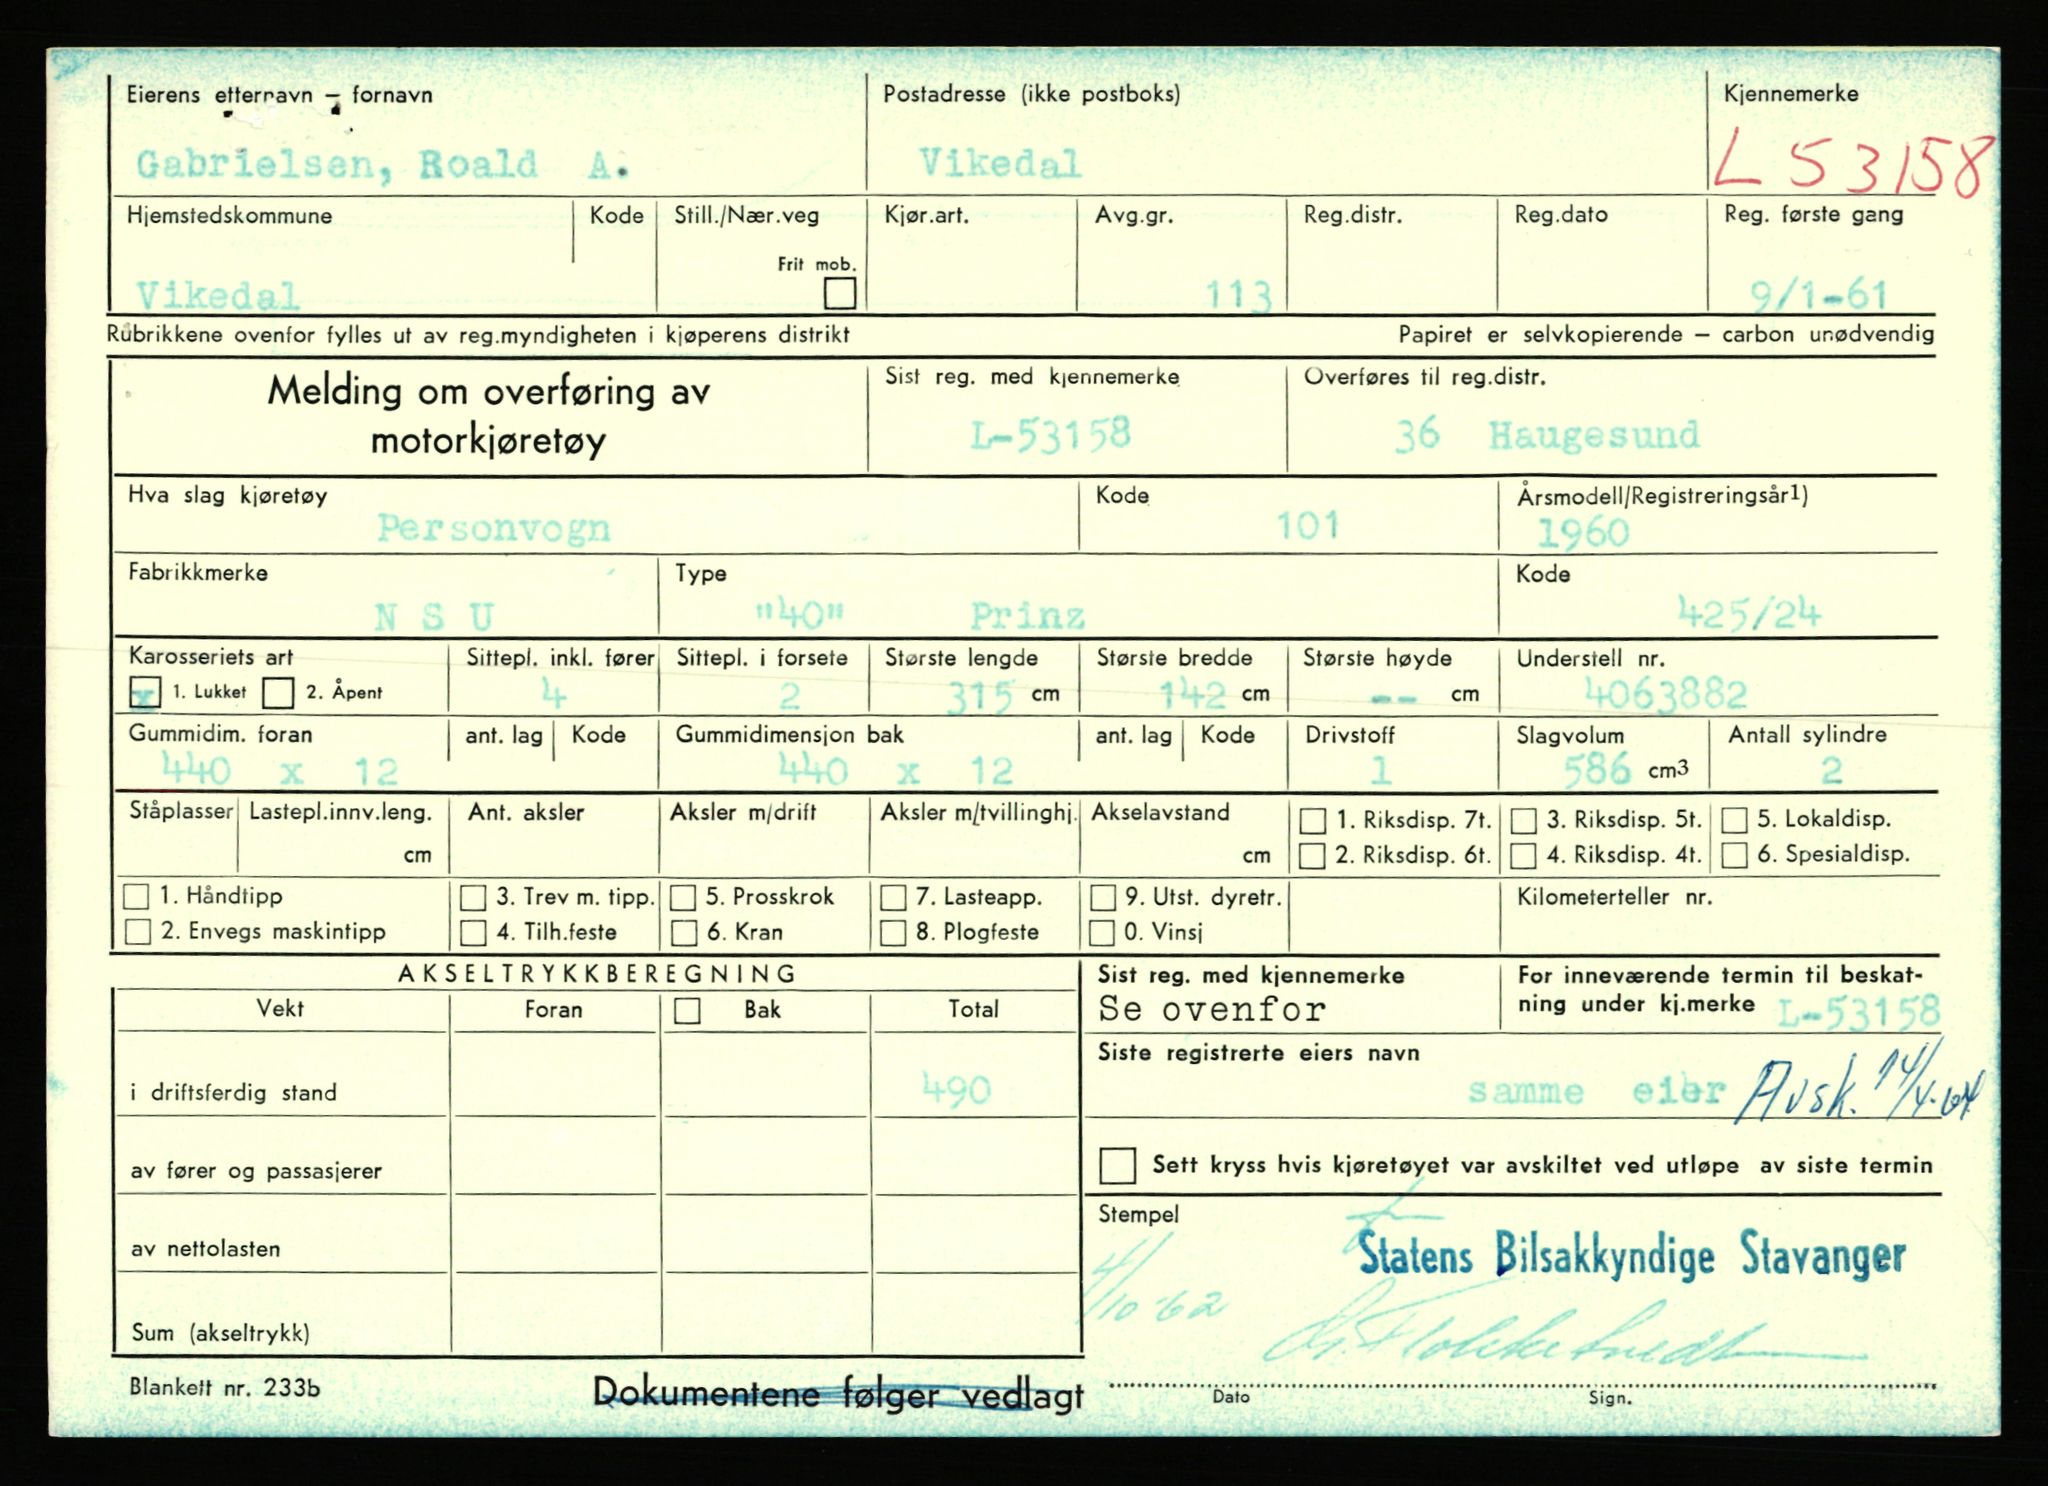 Eierens etternavn – fornavn Postadresse (ikke postboks) Kjennemerke
Gabrielsen, Roald A. Vikedal L 53158
Hjemstedskommune Kode Still./Nær.veg Kjør.art. Avg.gr. Reg.distr. Reg.dato Reg. første gang
Frit mob.
Vikedal 113 9/1-61
Rubrikkene ovenfor fylles ut av reg.myndigheten i kjøperens distrikt Papiret er selvkopierende – carbon unødvendig
Melding om overføring av Sist reg. med kjennemerke Overføres til reg.distr.
motorkjøretøy L-53158 36 Haugesund
Hva slag kjøretøy Kode Årsmodell/Registreringsår1)
Personvogn 101 1960
Fabrikkmerke Type Kode
N S U "40" Prinz 425/24
Karosseriets art Sittepl. inkl. fører Sittepl. i forsete Største lengde Største bredde Største høyde Understell nr.
x 1. Lukket 2. Åpent 4 2 315 cm 142 cm -- cm 4063882
Gummidim. foran ant. lag Kode Gummidimensjon bak ant. lag Kode Drivstoff Slagvolum Antall sylindre
440 x 12 440 x 12 1 586 cm3 2
Ståplasser Lastepl.innv.leng. Ant. aksler Aksler m/drift Aksler m/tvillinghj. Akselavstand 1. Riksdisp. 7t. 3. Riksdisp. 5t. 5. Lokaldisp.
cm cm 2. Riksdisp. 6t. 4. Riksdisp. 4t. 6. Spesialdisp.
1. Håndtipp 3. Trev m. tipp. 5. Prosskrok 7. Lasteapp. 9. Utst. dyretr. Kilometerteller nr.
2. Envegs maskintipp 4. Tilh.feste 6. Kran 8. Plogfeste 0. Vinsj
AKSELTRYKKBEREGNING Sist reg. med kjennemerke For inneværende termin til beskat-
Vekt Foran Bak Total Se ovenfor ning under kj.merke L-53158
Siste registrerte eiers navn
i driftsferdig stand 490 samme eier Avsk. 14/4-64
av fører og passasjerer Sett kryss hvis kjøretøyet var avskiltet ved utløpe av siste termin
Stempel
av nettolasten Statens Bilsakkyndige Stavanger
4/10-62
Sum (akseltrykk)
Blankett nr. 233b Dokumentene følger vedlagt Dato Sign.